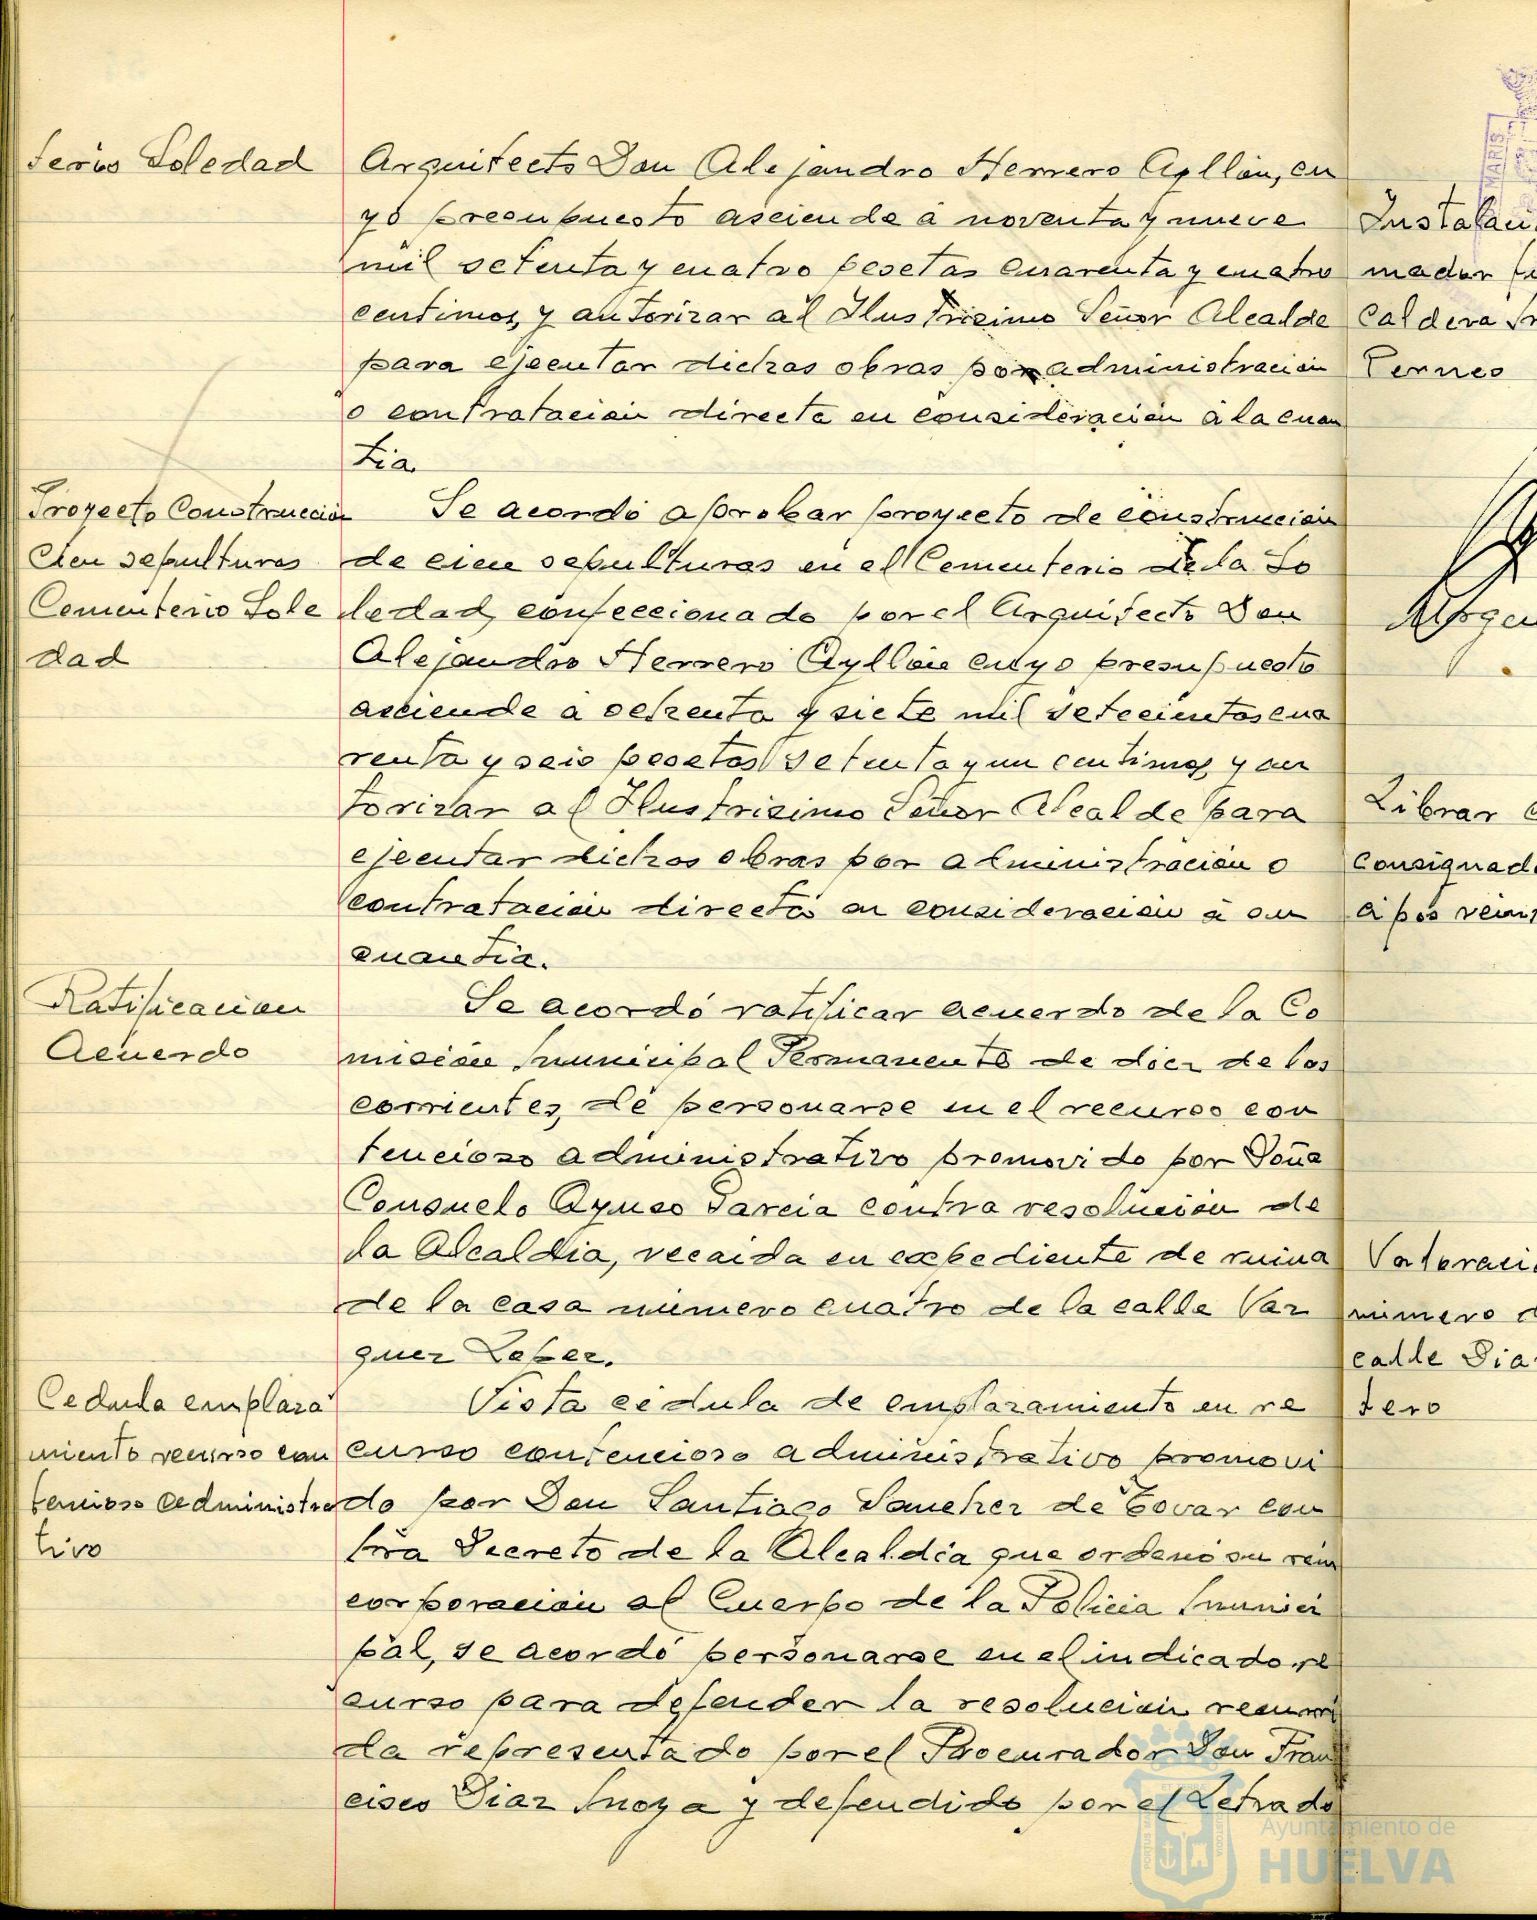 terio Soledad
Arquitecto Don Alejandro Herrero Ayllón, cu
yo presupuesto asciende a noventa y nueve
mil setenta y cuatro pesetas cuarenta y cuatro
centimos, y autorizar al Ilustrisimo Señor Alcalde
para ejecutar dichas obras por administración
o contratación directa en consideración a la cuan
tia.
Proyecto Construcción
Cien sepulturas
Cementerio Sole
dad
Se acordó aprobar proyecto de construcción
de cien sepulturas en el Cementerio de la So
ledad, confeccionado por el Arquitecto Don
Alejandro Herrero Ayllón cuyo presupuesto
asciende a ochenta y siete mil setecientas cua
renta y seis pesetas setenta y un centimos, y au
torizar al Ilustrisimo Señor Alcalde para
ejecutar dichas obras por administración o
contratación directa en consideración a su
cuantia.
Ratificacion
Acuerdo
Se acordó ratificar acuerdo de la Co
misión Municipal Permanente de diez de los
corrientes, de personarse en el recurso con
tencioso administrativo promovido por Doña
Consuelo Ayuso Garcia contra resolución de
la Alcaldia, recaida en expediente de ruina
de la casa número cuatro de la calle Vaz
quez Lopez.
Cedula emplaza
miento recurso con
tencioso administra
tivo
Vista cédula de emplazamiento en re
curso contencioso administrativo promovi
do por Don Santiago Sanchez de Tovar con
tra Decreto de la Alcaldía que ordenó su rein
corporación al Cuerpo de la Policia Munici
pal, se acordó personarse en el indicado re
curso para defender la resolución recurri
da representado por el Procurador Don Fran
cisco Diaz Moya y defendido por el Letrado
MARIS
Instalaci
mador
Caldera
Perneo
Librar
consignad
a pos rein
Valoraci
número d
calle Dia
tero
Ayuntamiento de
HUELVA